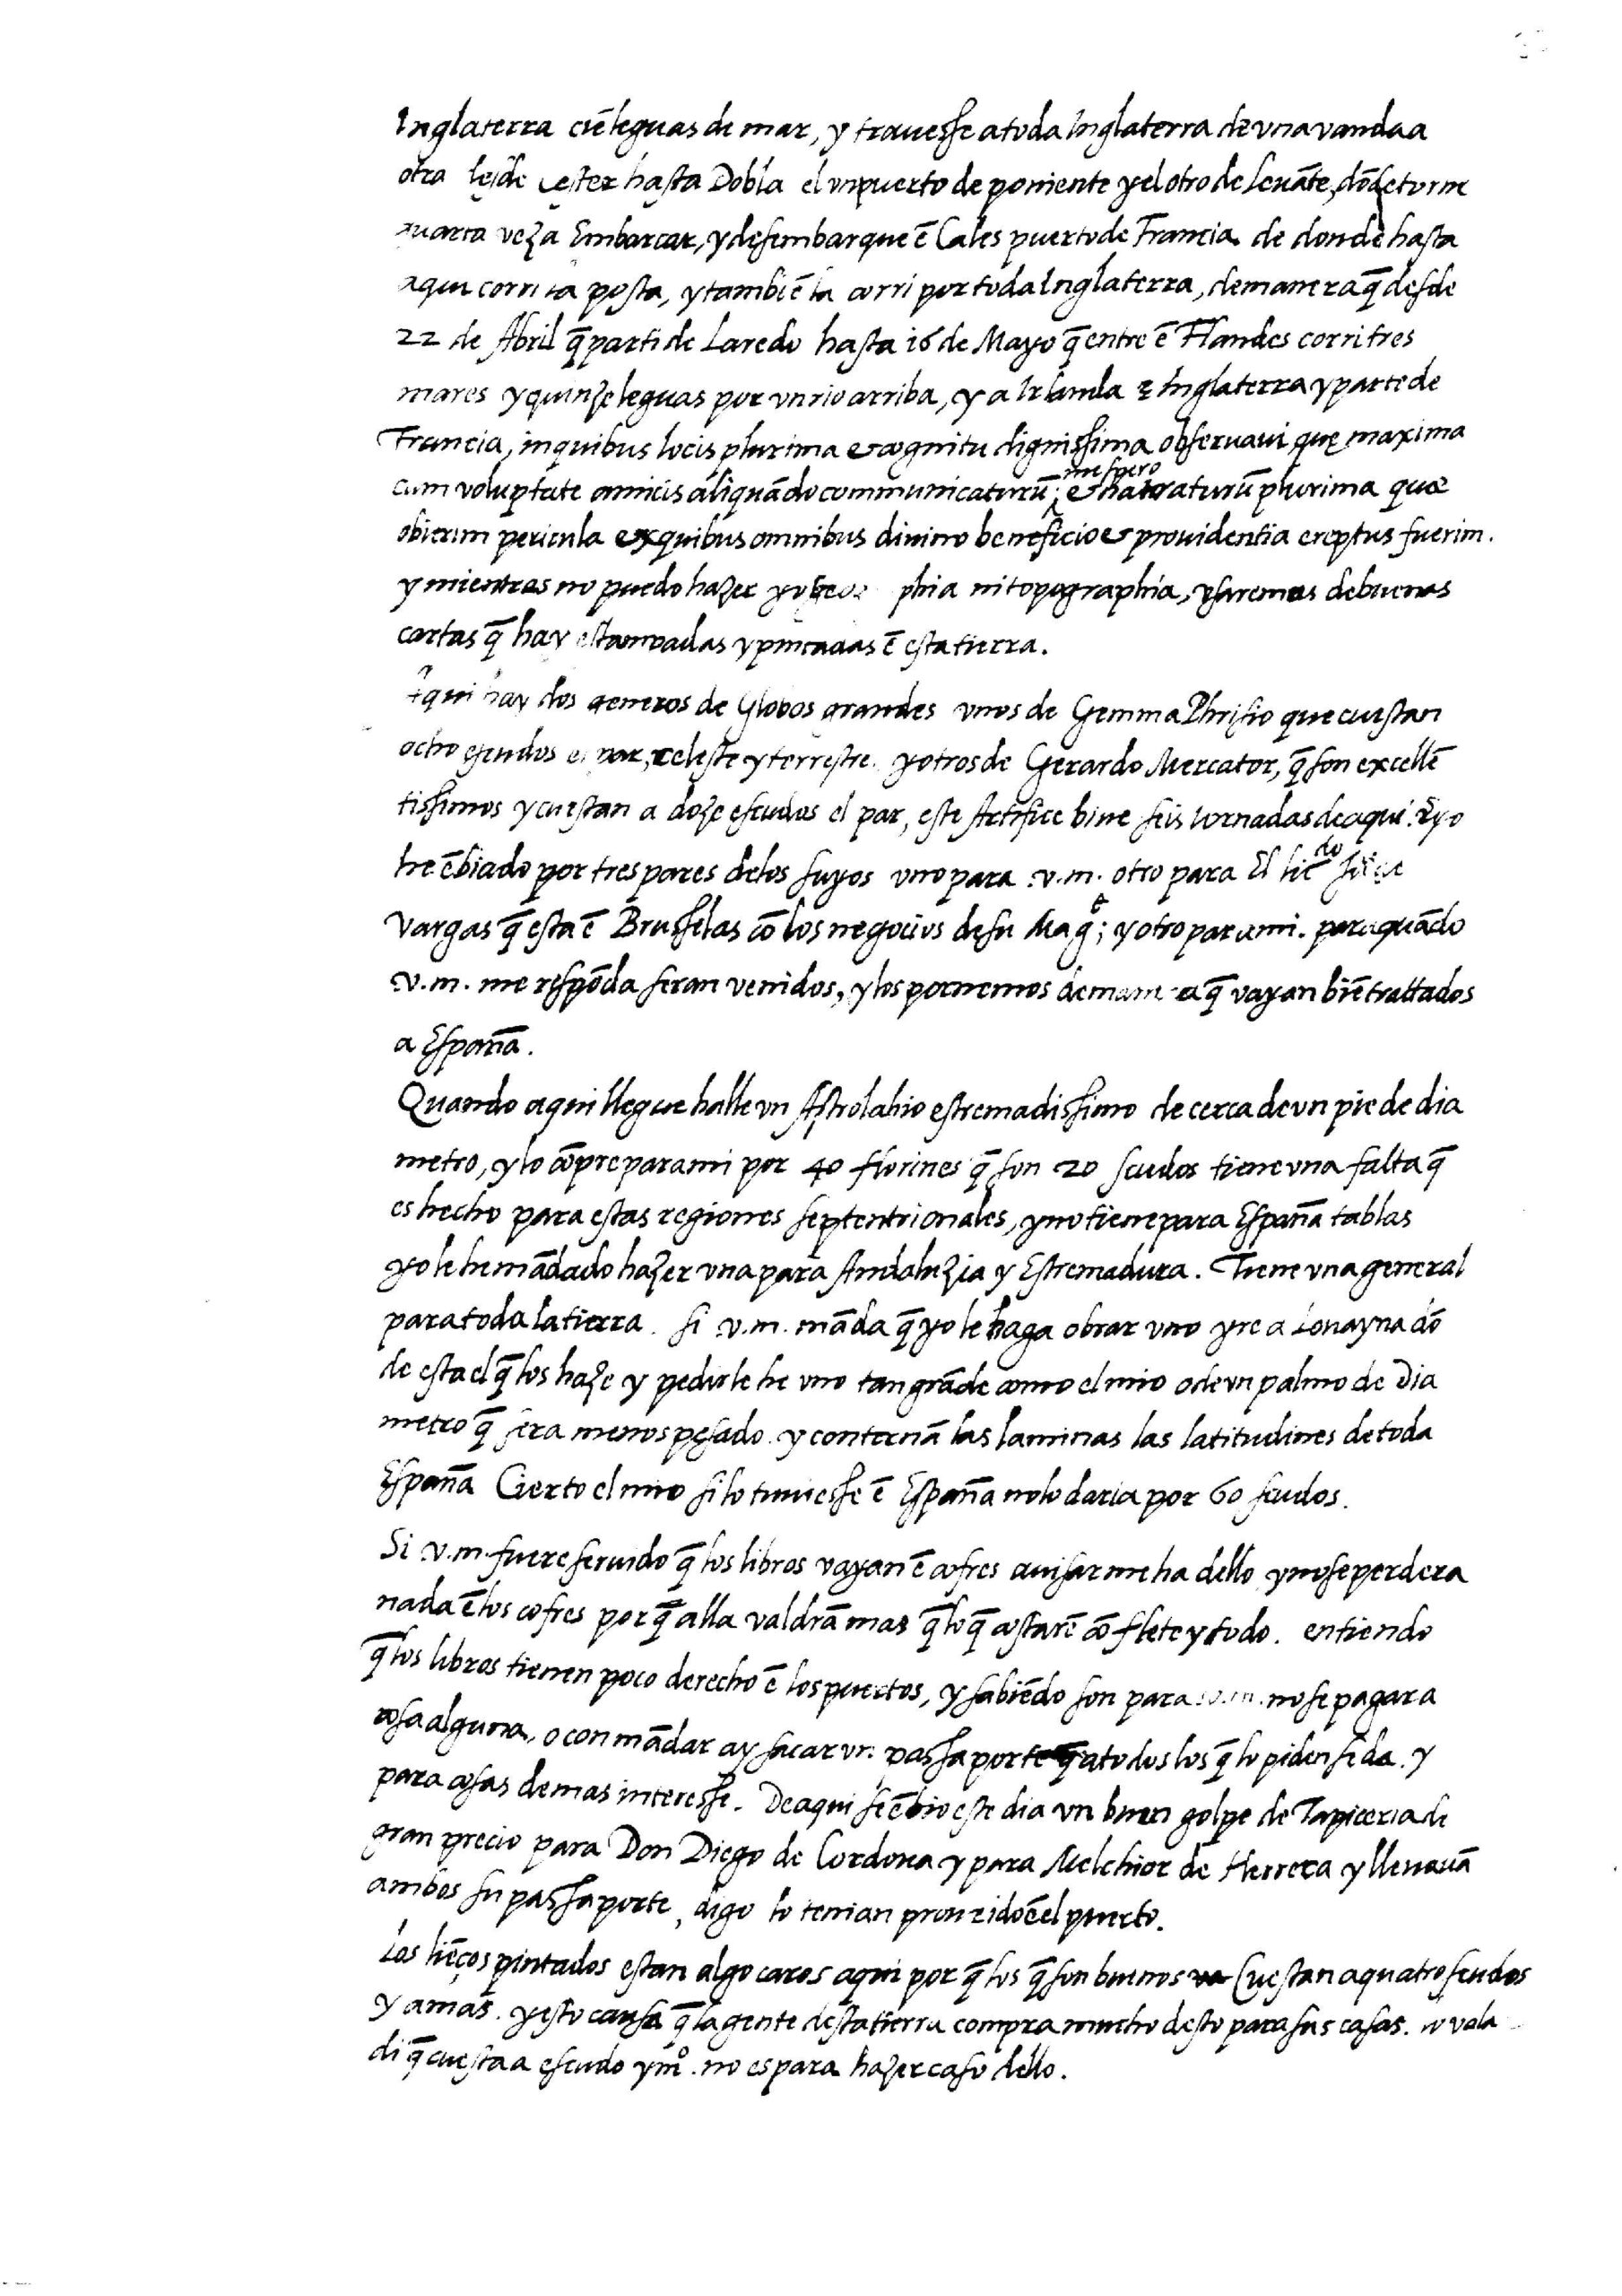 Inglaterra ciē leguas de mar, y trauesse a toda Inglaterra de vna vanda a
otra desde Cester hasta Dobla el vn puerto de poniente y el otro de leuāte, dōde torne
quarta vez a Embarcar, y desembarque ē Cales puerto de Francia de donde hasta
aqui corri la posta, y tambiē la corri por toda Inglaterra, de manera q̄ desde
22 de Abril q̄ parti de Laredo hasta 16 de Mayo q̄ entre ē Flandes corri tres
mares y quinze leguas por vn rio arriba, y a Irlanda & Inglaterra y parte de
Francia, in quibus locis plurima & cognitu dignissima obseruaui quę maxima
cum voluptate amicis aliquādo communicaturū me spero; & narraturū plurima quae
obierim pericula ex quibus omnibus diuino beneficio & prouidentia ereptus fuerim.
y mientras no puedo hazer yo phia ni topographia, vsaremos de buenas
cartas q̄ hay estampadas y pintadas ē esta tierra.
Aqui hay dos generos de Globos grandes vnos de Gemma Phrisio que cuestan
ocho escudos el par, celeste y terrestre. y otros de Gerardo Mercator, q̄ son excellē
tissimos y cuestan a doze escudos el par, este Artifice biue seis Iornadas de aqui. & yo
he ēbiado por tres pares de los suyos vno para .v.m. otro para El licdo
Vargas q̄ esta ē Brusselas cō los negocios de su Maḡe; y otro para mi. para quādo
v.m. me respōda seran venidos, y los pornemos de manera q̄ vayan biē trattados
a España.
Quando aqui llegue halle vn Astrolabio estremadissimo de cerca de vn pie de dia
metro, y lo cōpre para mi por 40 florines q̄ son 20 scudos tiene vna falta q̄
es hecho para estas regiones septentrionales, y no tiene para España tablas
yo le he mādado hazer vna para Andaluzia y Estremadura. Tiene vna general
para toda la tierra. si .v.m. māda q̄ yo le haga obrar vno yre a Louayna dō
de esta el q̄ los haze y pedirle he vno tan grāde como el mio o de vn palmo de Dia
metro q̄ sera menos pesado. y conternā las laminas las latitudines de toda
España Cierto el mio si lo tuuiesse ē España no lo daria por 60 scudos.
Si .v.m. fuere seruido q̄ los libros vayan ē cofres auisar me ha dello y no se perdera
nada ē los cofres por q̄ alla valdrā mas q̄ lo q̄ costarē cō flete y todo. entiendo
q̄ los libros tienen poco derecho ē los puertos, y sabiēdo son para .v.m. no se pagara
cosa alguna, o con mādar ay sacar vn passaporte q̄ a todos los q̄ lo piden se da. y
para cosas de mas interesse. De aqui se ēbio este dia vn buen golpe de Tapiceria de
gran precio para Don Diego de Cordoua y para Melchior de Herrera y lleuauā
ambos su passaporte, digo lo tenian proueido ē el puerto.
Los liēços pintados estan algo caros aqui por q̄ los q̄ son buenos Cuestan a quatro scudos
y a mas. y esto causa q̄ la gente desta tierra compra mucho desto para sus casas. lo vala
di q̄ cuesta a escudo y mº. no es para hazer caso dello.